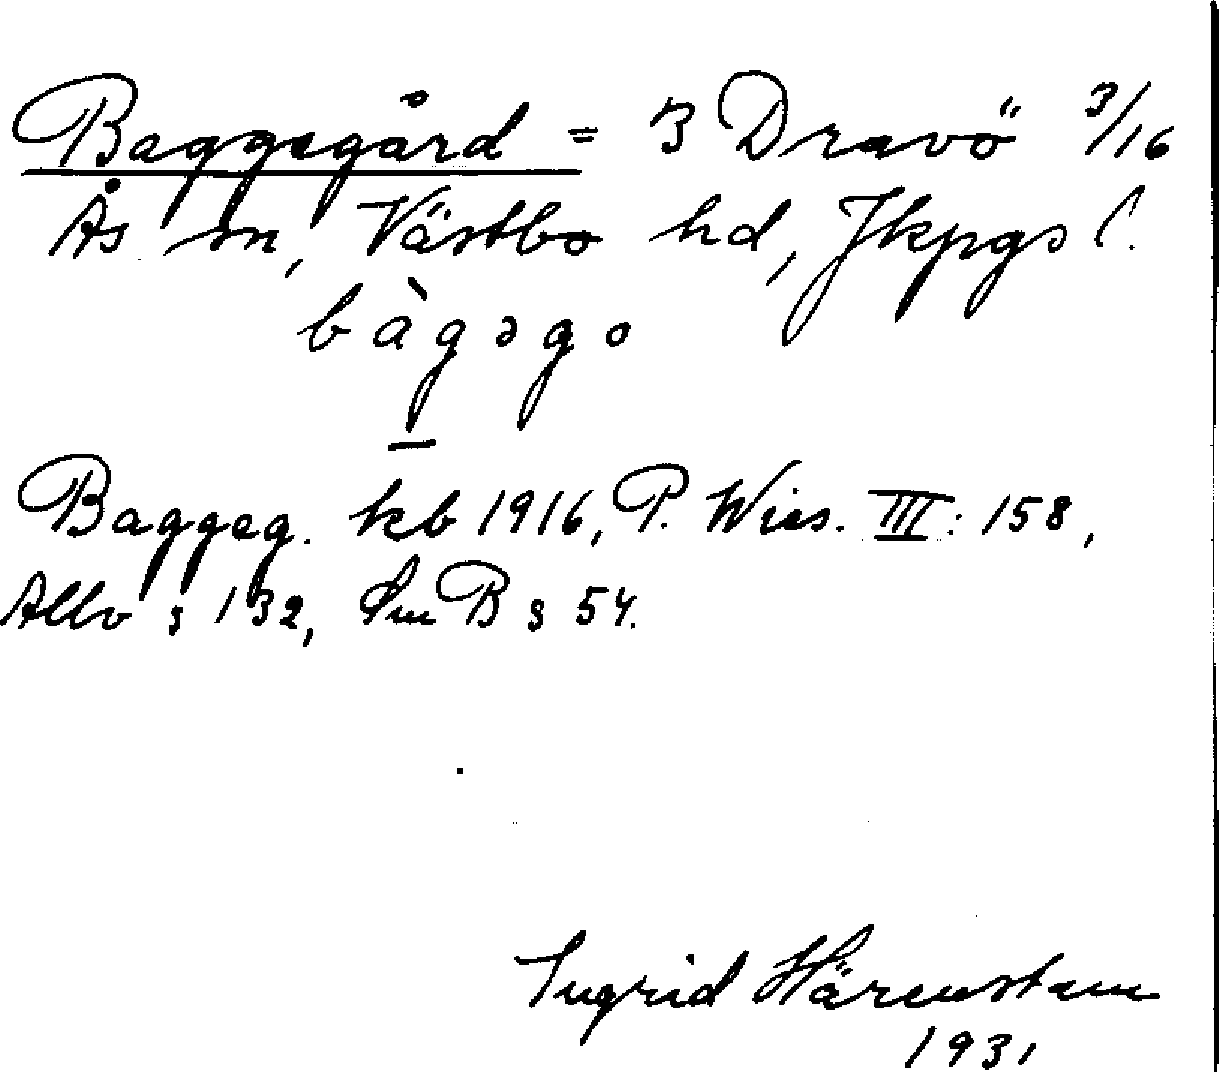 Baggegård = 3 Dravö 3/16
Ås sn, Västbo hd, Jkpgs l.
bàgəgo
Baggeg. kb 1916, P. Wies. III: 158,
Allv § 132, Sm B § 54.
Ingrid Härenstam
1931